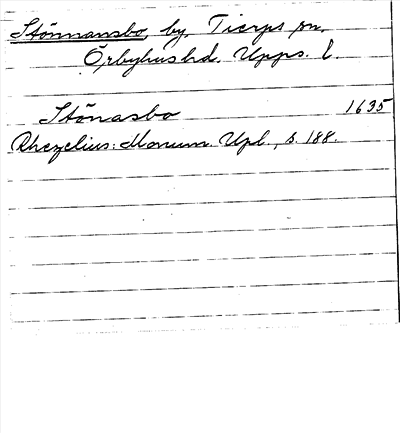 Stönnansbo, by, Tierps sn.
Örbyhus hd. Upps. l.
Stönasbo 1635
Rhezelius: Monum. Upl., s. 188.